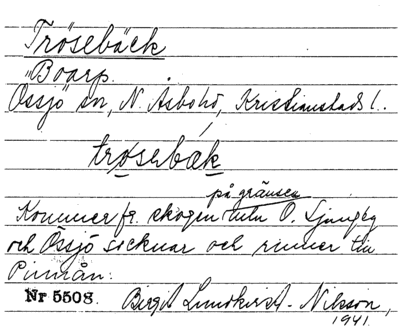 Trösebäck
"Boarp.
Össjö sn, N. Åsbo hd, Kristianstads l.
trǫsebäk
på gränsen
Kommer fr. skogen mln Ö. Ljungby
och Össjö socknar och rinner till
Pinnån.
Nr 5508. Birgit Lundkvist-Nilsson,
1941.